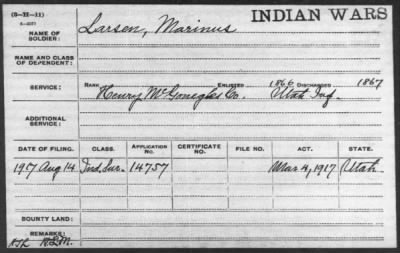 (5-II-11) INDIAN WARS
NAME OF SOLDIER: Larsen, Marinus
NAME AND CLASS OF DEPENDENT:
SERVICE: RANK ENLISTED 1866 DISCHARGED 1867
Henry McGonegles Co. Utah Inf.
ADDITIONAL SERVICE:
DATE OF FILING. CLASS. APPLICATION NO. CERTIFICATE NO. FILE NO. ACT. STATE.
1917 Aug 14 Ind. Sur. 14757 Mar 4, 1917 Utah
BOUNTY LAND:
REMARKS: